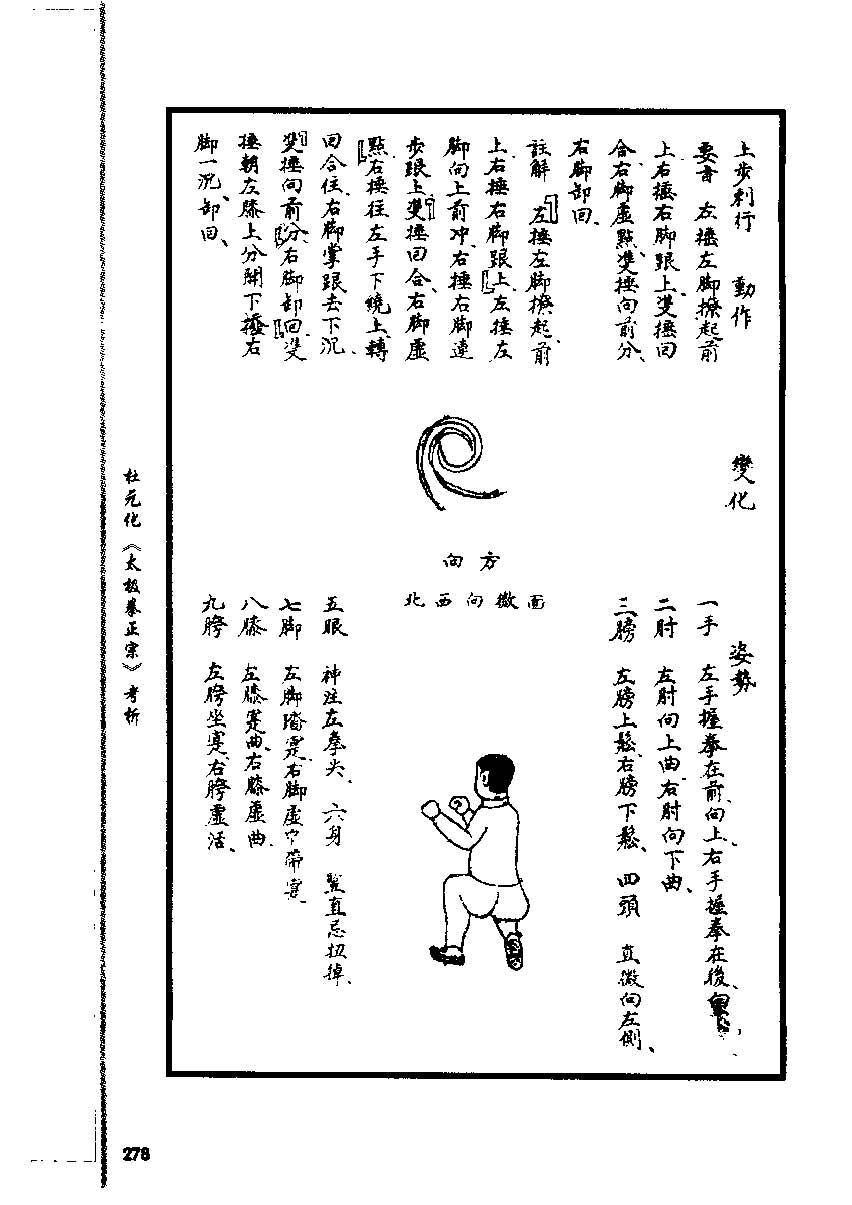 上步刹行　動作
要言　左捶左脚撩起前
上右捶右脚跟上、雙捶回
合、右脚虛點、雙捶向前分、
右脚卸回、
註解　左捶左脚撩起、前
上右捶右脚跟上、左捶左
脚向上前冲、右捶右脚連
步跟上、雙捶回合、右脚虛
點、右捶往左手下繞上、轉
回合住、右脚掌跟去下沉、
雙捶向前分、右脚卸回、雙
捶朝左膝上分開下捶、右
脚一沉、卸回、
變化
方向
面微向西北
姿勢
一手　左手握拳在前、向上、右手握拳在後、
二肘　左肘向上曲、右肘向下曲、
三膀　左膀上鬆、右膀下鬆、四頭　直微向左側、
五眼　神注左拳尖、六身　豎直忌扭掉、
七脚　左脚踏實、右脚虛中帶實
八膝　左膝實曲、右膝虛曲、
九胯　左胯坐實、右胯虛活、
杜元化《太极拳正宗》考析
278